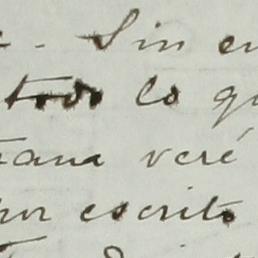 . Sin en
todo lo qu
ana veré
por escrito